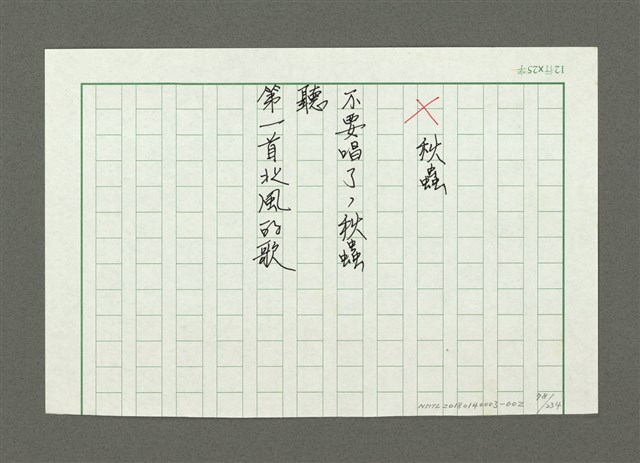 12行×25字
秋蟲
不要唱了，秋蟲
聽
第一首北風的歌
NMTL20180140003-002
98/234